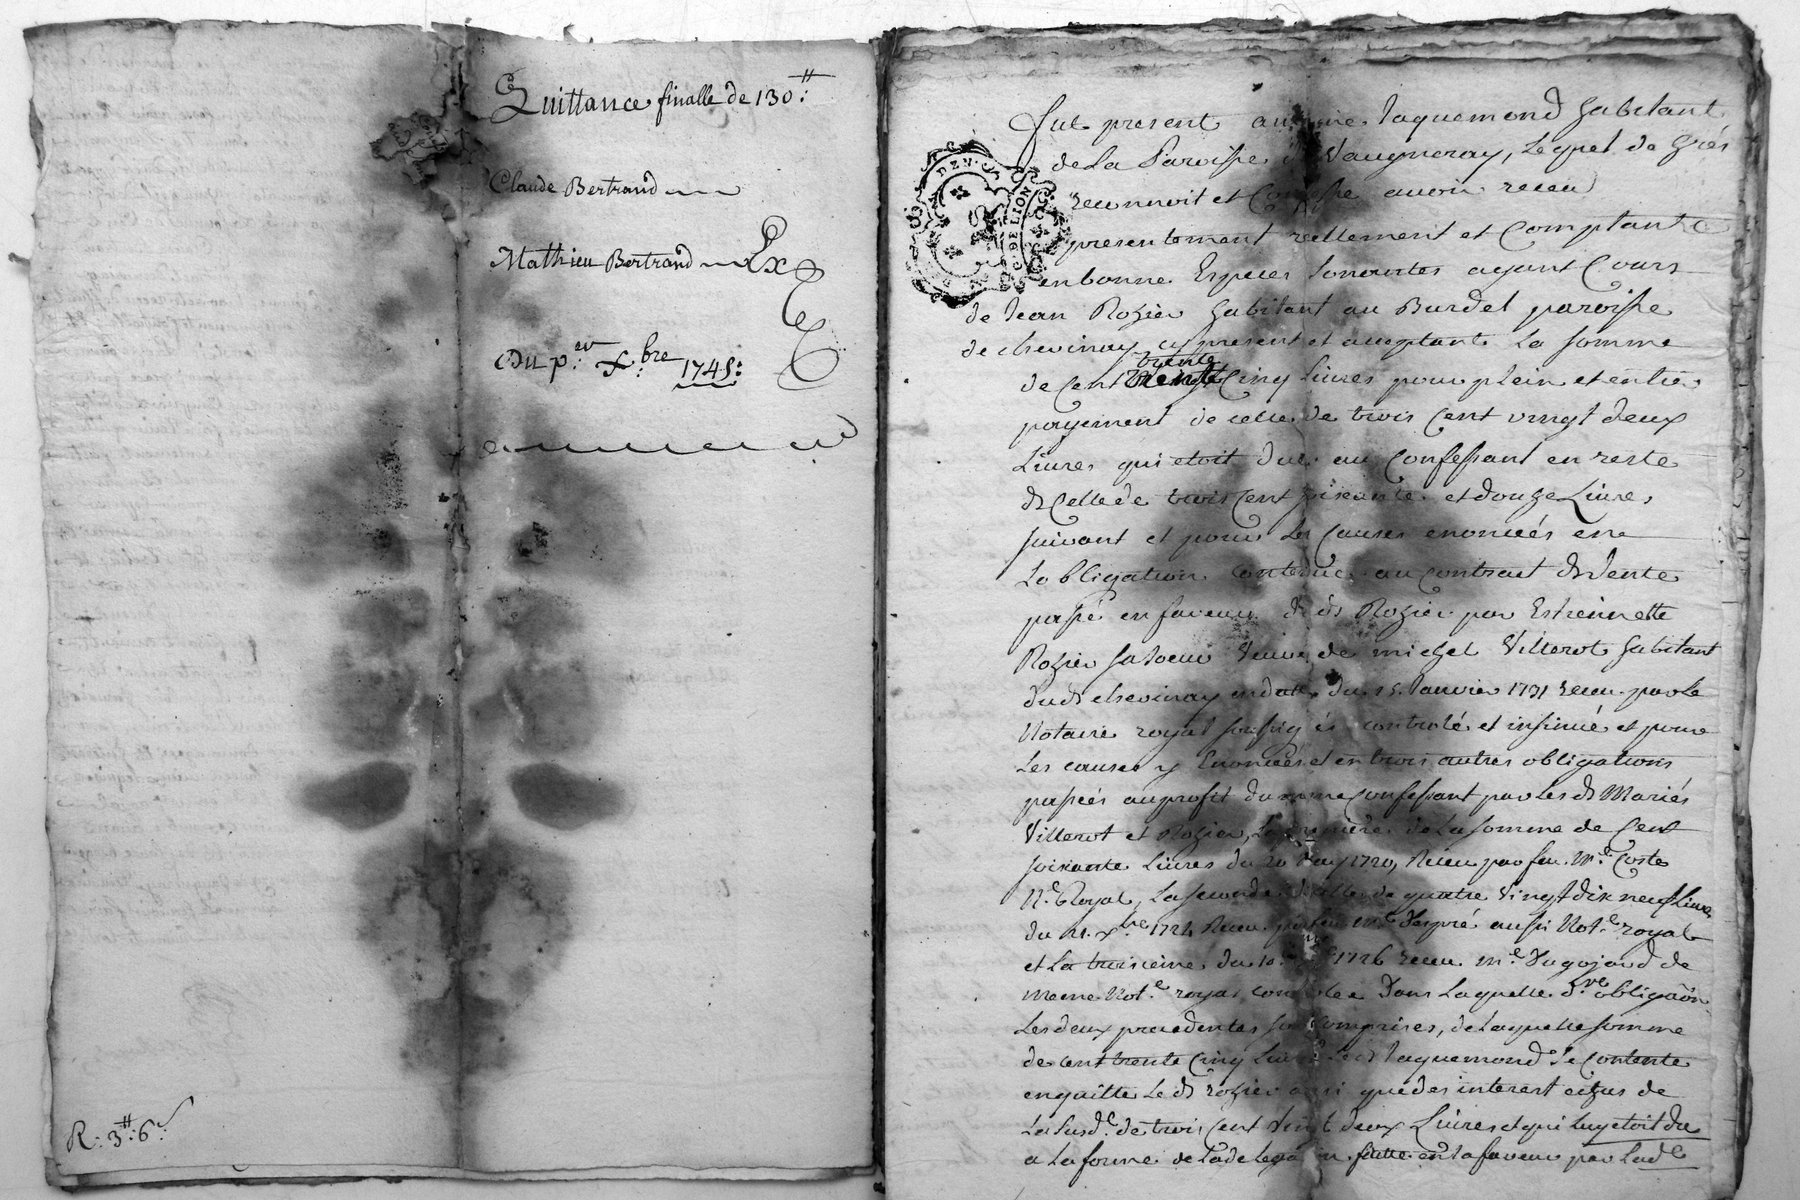 Quittance finalle de 130#:
Claude Bertrand
Mathieu Bertrand Ex
Du p.er xbre 1745:
R: 3#: 6s
GDELION
Fut present Jaquemond habitant
de la Paroisse de Vaugneray, Lequel de Grés
reconnoit et Confesse avoir receu
presentement reellement et Comptant
en bonne Especes Sonnantes ayant Cours
de Jean Rozier habitant au Burdel paroisse
de chevinay cy present et acceptant La somme
trente
de Cent Cinq Livres pour plein et entier
payement de celle de trois Cent vingt deux
Livres qui etoit due au Confessant en reste
de Celle de trois Cent soixante et douze Livres
suivant et pour les Causes enoncées en
Lobligation contenue au Contract de Vente
passé en faveur du d. Rozier par Estiennette
Rozier sa soeur Veuve de michel Villerot habitant
dud. chevinay en datte du 15. Janvier 1731 receu par le
Notaire royal soussigné controlé et insinué et pour
Les causes y Enoncées et en trois autres obligations
passées au profit du meme Confessant par Les d. Mariés
Villerot et Rozier, La premiere de La somme de Cent
soixante Livres du 20 1720, Receu par feu M.e Coste
N.re Royal, La seconde de celle de quatre Vingt dix neuf Livres
du 21. xbre 1724 Receu par feu M.e aussi Not.e royal
et La troisieme du 10. 1726 receu M.e de
meme Not.e royal controlée Dans Laquelle d.re obligaôn
Les deux precedentes sont comprises, de Laquelle somme
de cent trente Cinq Livres Led. Jaquemond se Contente
en quitte Le d. rozier ainsi que des interest echus de
La susd.e de trois Cent Vingt deux Livres et qui Luy etoit due
a La forme de La delegaôn faitte en sa faveur par Lad.e